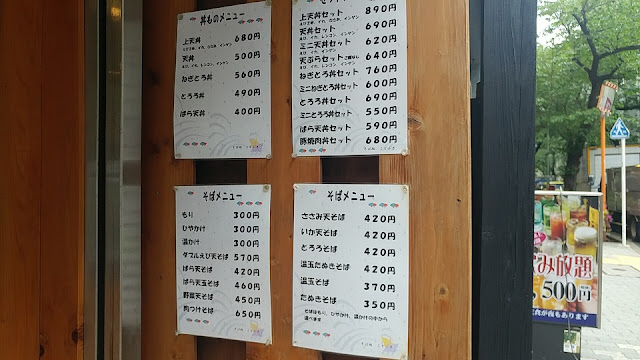 丼ものメニュー
上天丼 680円
天丼 500円
ねぎとろ丼 560円
とろろ丼 490円
ばら天丼 400円
上天丼セット 890円
天丼セット 690円
ミニ天丼セット 620円
天ぷらセット 640円
ねぎとろ丼セット 760円
ミニねぎとろ丼セット 600円
とろろ丼セット 690円
ミニとろろ丼セット 550円
ばら天丼セット 590円
豚焼肉丼セット 680円
そばメニュー
もり 300円
ひやかけ 300円
温かけ 300円
ダブルえび天そば 570円
ばら天そば 420円
ばら天玉そば 460円
野菜天そば 450円
肉つけそば 650円
そばメニュー
ささみ天そば 420円
いか天そば 420円
とろろそば 420円
温玉たぬきそば 420円
温玉そば 370円
たぬきそば 350円
そばはもり、ひやかけ、温かけの中から
選べます
み放題
500円